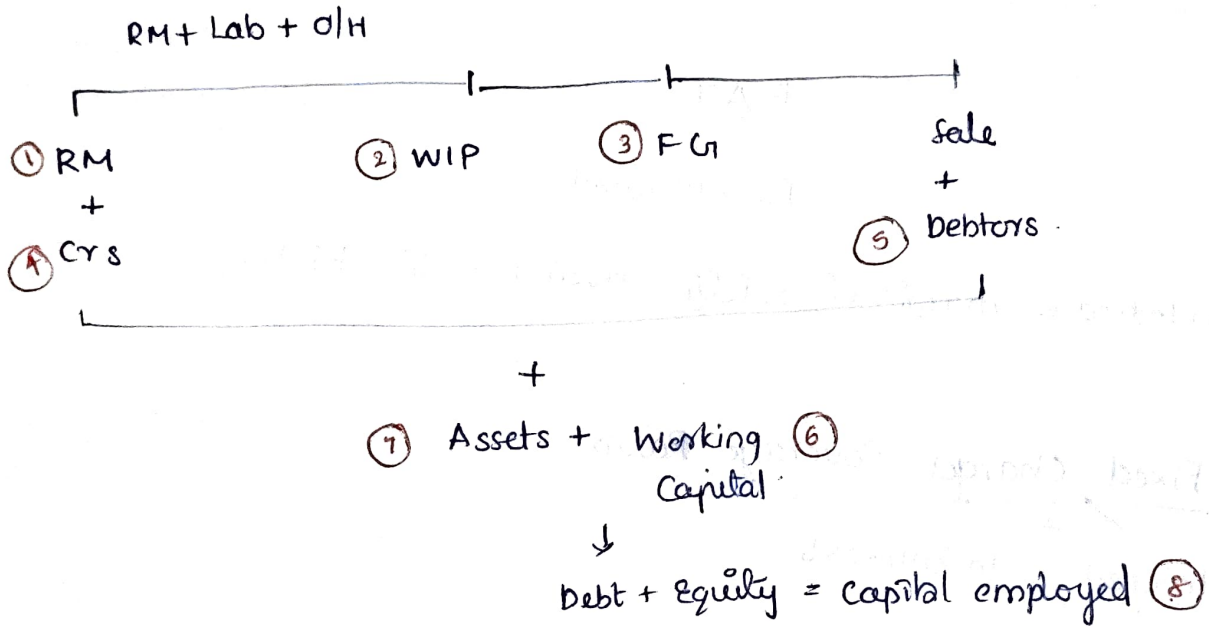 RM + Lab + O/H
① RM
② WIP
③ FG
Sale
+
+
④ Crs
⑤ Debtors.
+
⑦ Assets + Working ⑥
Capital
↓
Debt + Equity = Capital employed ⑧